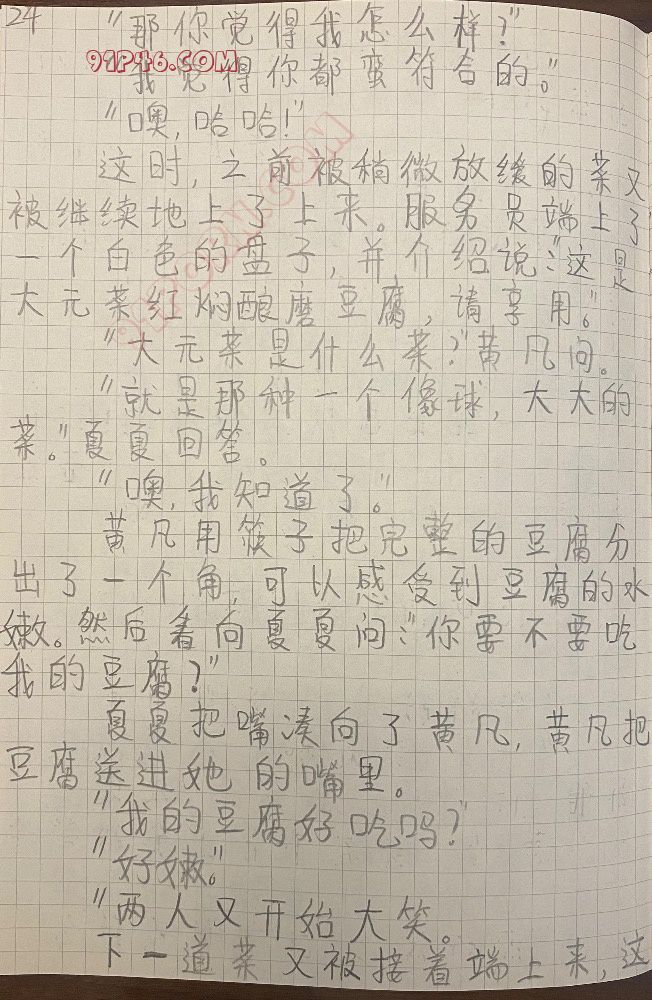 24
"那你觉得我怎么样?"
91P46.COM
"我觉得你都蛮符合的。"
"噢,哈哈!"
这时,之前被稍微放缓的菜又
被继续地上了上来。服务员端上了
一个白色的盘子,并介绍说:"这是
大元菜红焖酿磨豆腐,请享用。"
"大元菜是什么菜?"黄凡问。
"就是那种一个像球,大大的
菜。"夏夏回答。
"噢,我知道了。"
黄凡用筷子把完整的豆腐分
出了一个角,可以感受到豆腐的水
嫩。然后看向夏夏问:"你要不要吃
我的豆腐?"
夏夏把嘴凑向了黄凡,黄凡把
豆腐送进她的嘴里。
"我的豆腐好吃吗?"
"好嫩。"
"两人又开始大笑。
下一道菜又被接着端上来,这